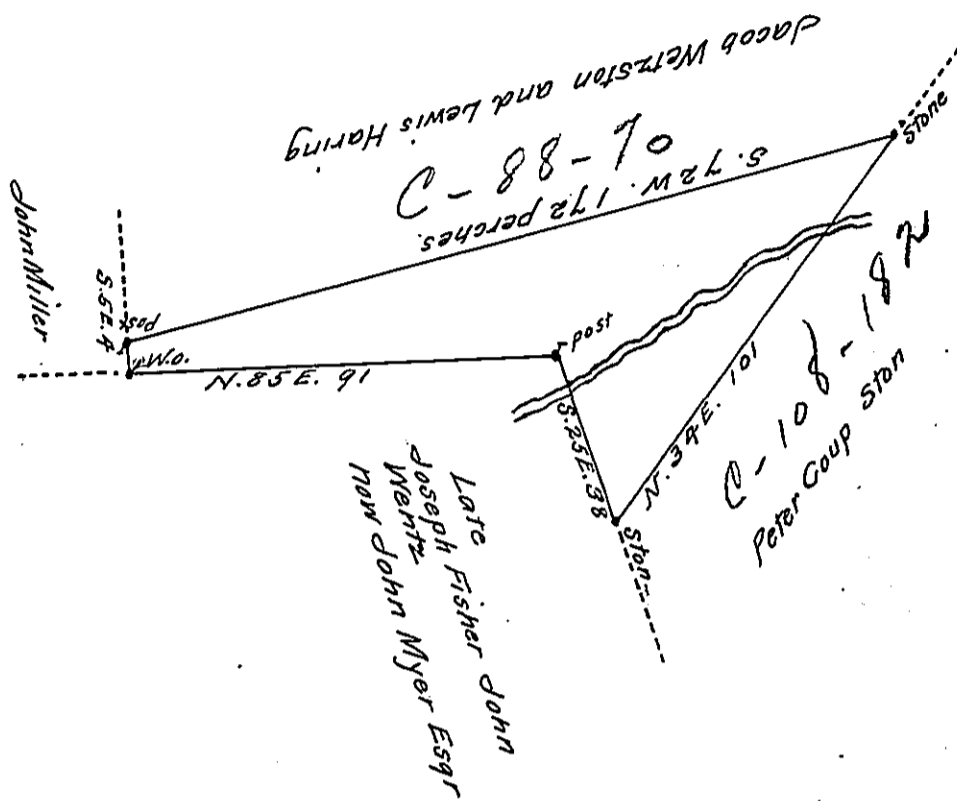 Jacob Wetzston and Lewis Haring
C-88-70
S. 72 W. 172 perches.
Stone
John Miller
S. 5 E. 4
post
W.O.
N. 85 E. 91
post
S. 25 E. 38
N. 34 E. 101
Ston
C-108-182
Peter Coup Ston
Late
Joseph Fisher John
Wentz
now John Myer Esqr